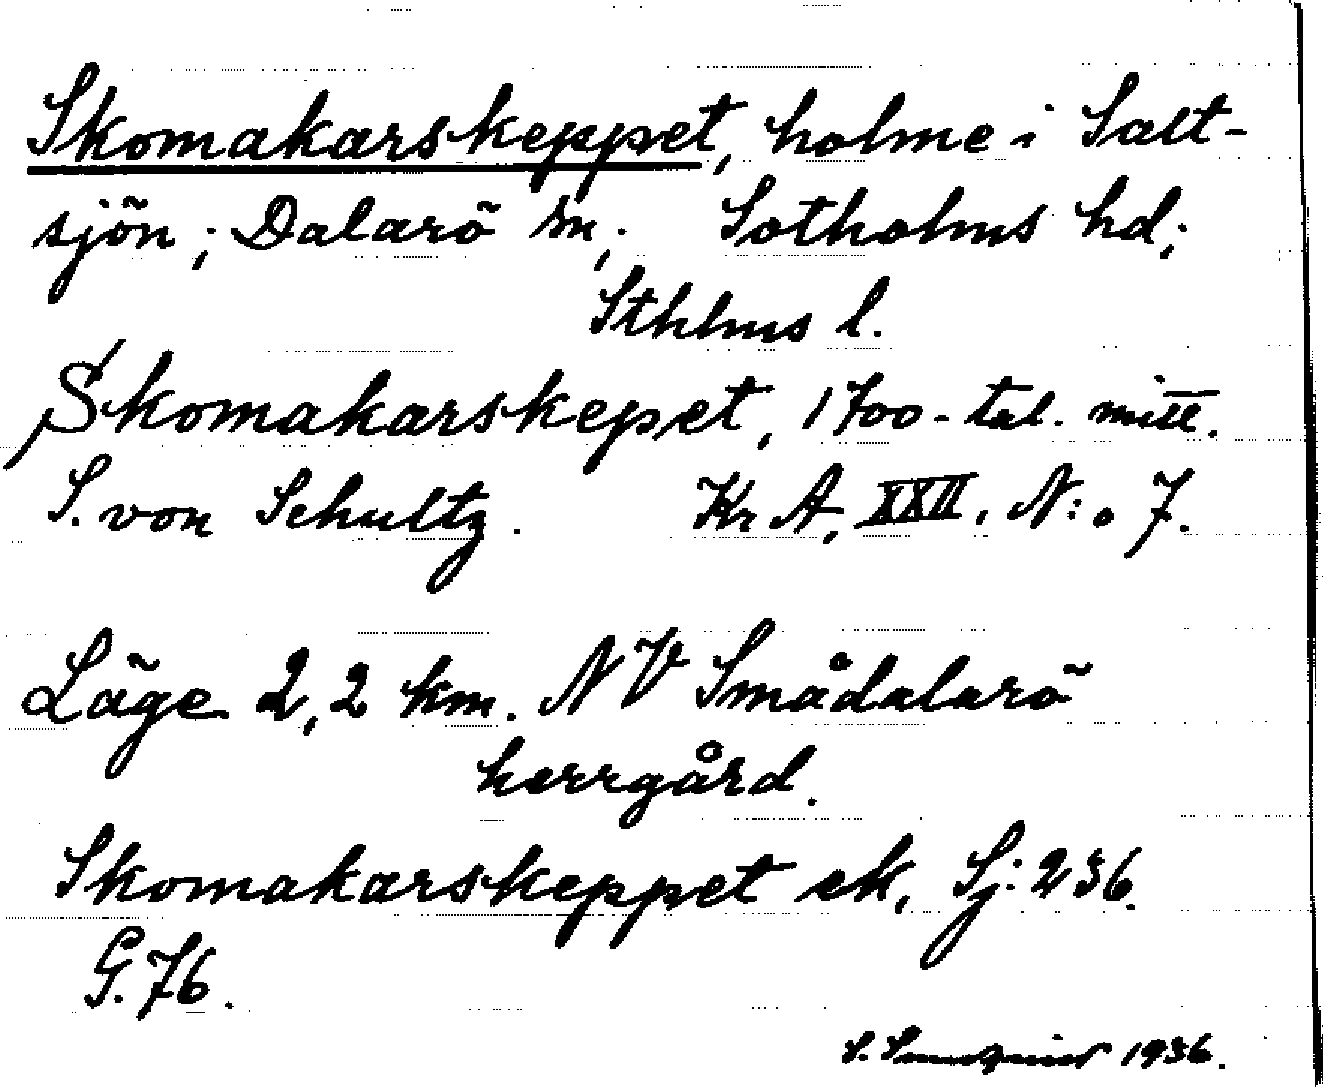 Skomakarskeppet, holme i Salt-
sjön; Dalarö sn; Sotholms hd;
Sthlms l.
Skomakarskepet, 1700-tal. mitt.
S. von Schultz. Kr A, XXII, N:o 7.
Läge 2,2 km. NV Smådalarö
herrgård.
Skomakarskeppet ek, Sj: 236.
G. 76.
S. 1936.